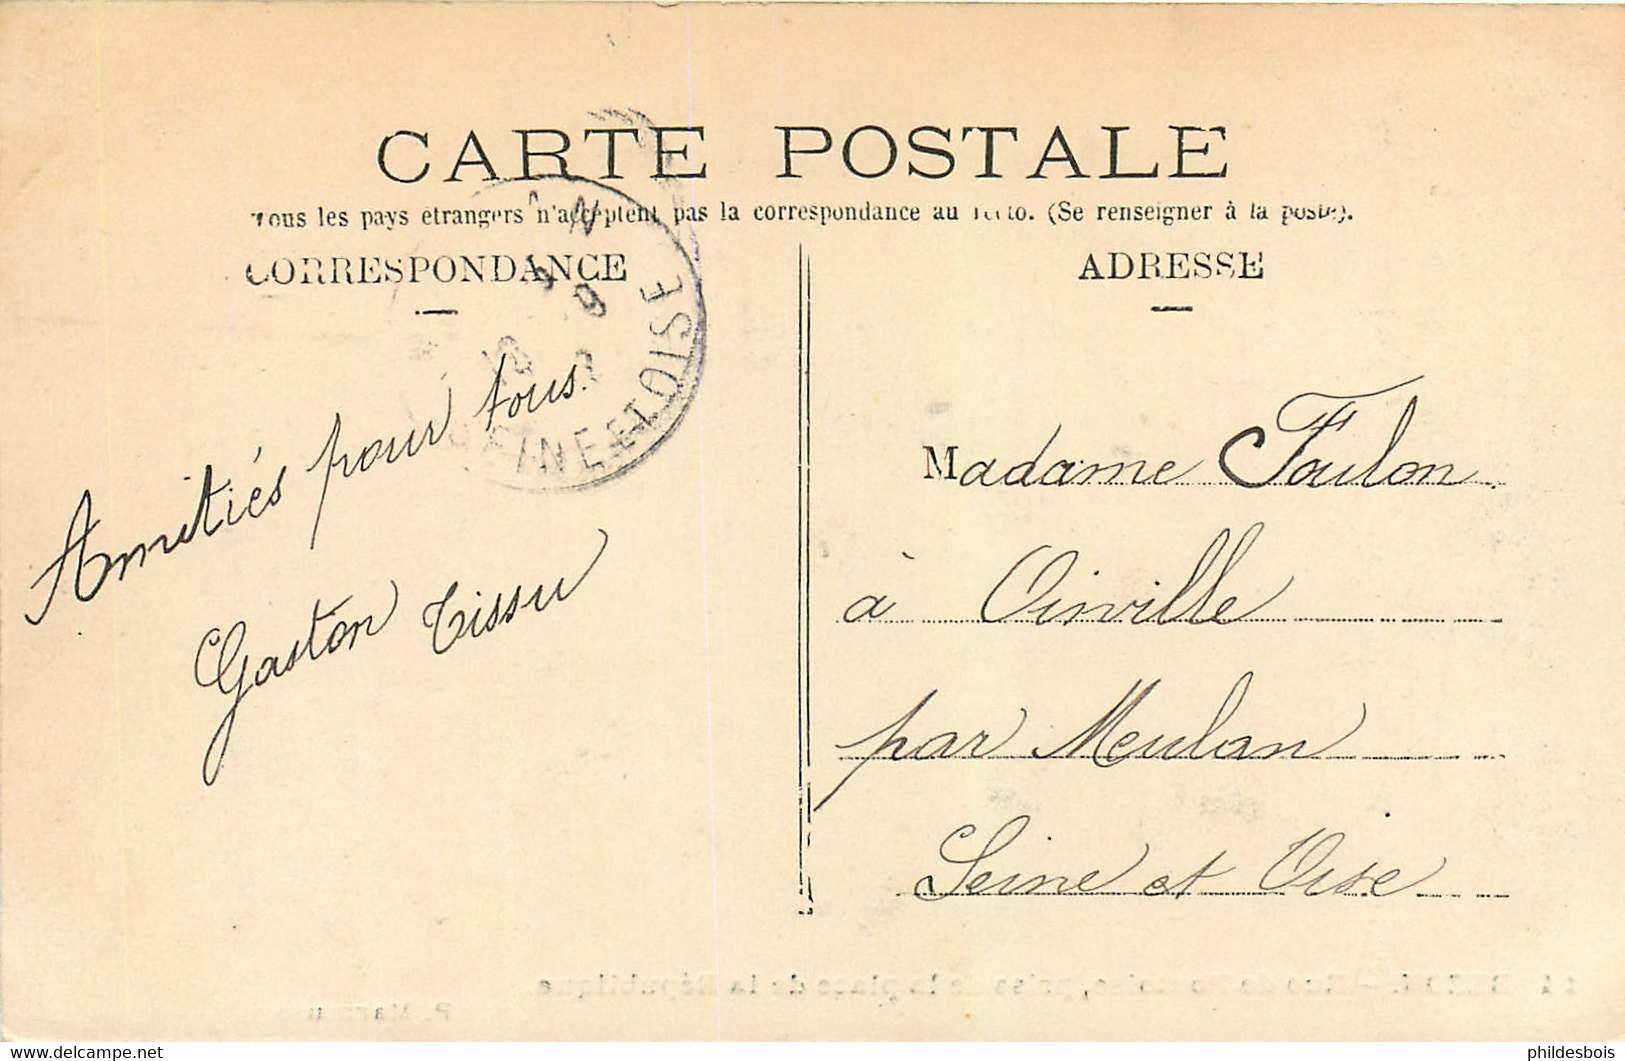 CARTE POSTALE
Tous les pays étrangers n'acceptent pas la correspondance au recto. (Se renseigner à la poste).
CORRESPONDANCE
ADRESSE
SEINE ET OISE
Amitiés pour tous.
Gaston Tissu
Madame Foulon
à Oinville
par Meulan
Seine et Oise
phildesbois